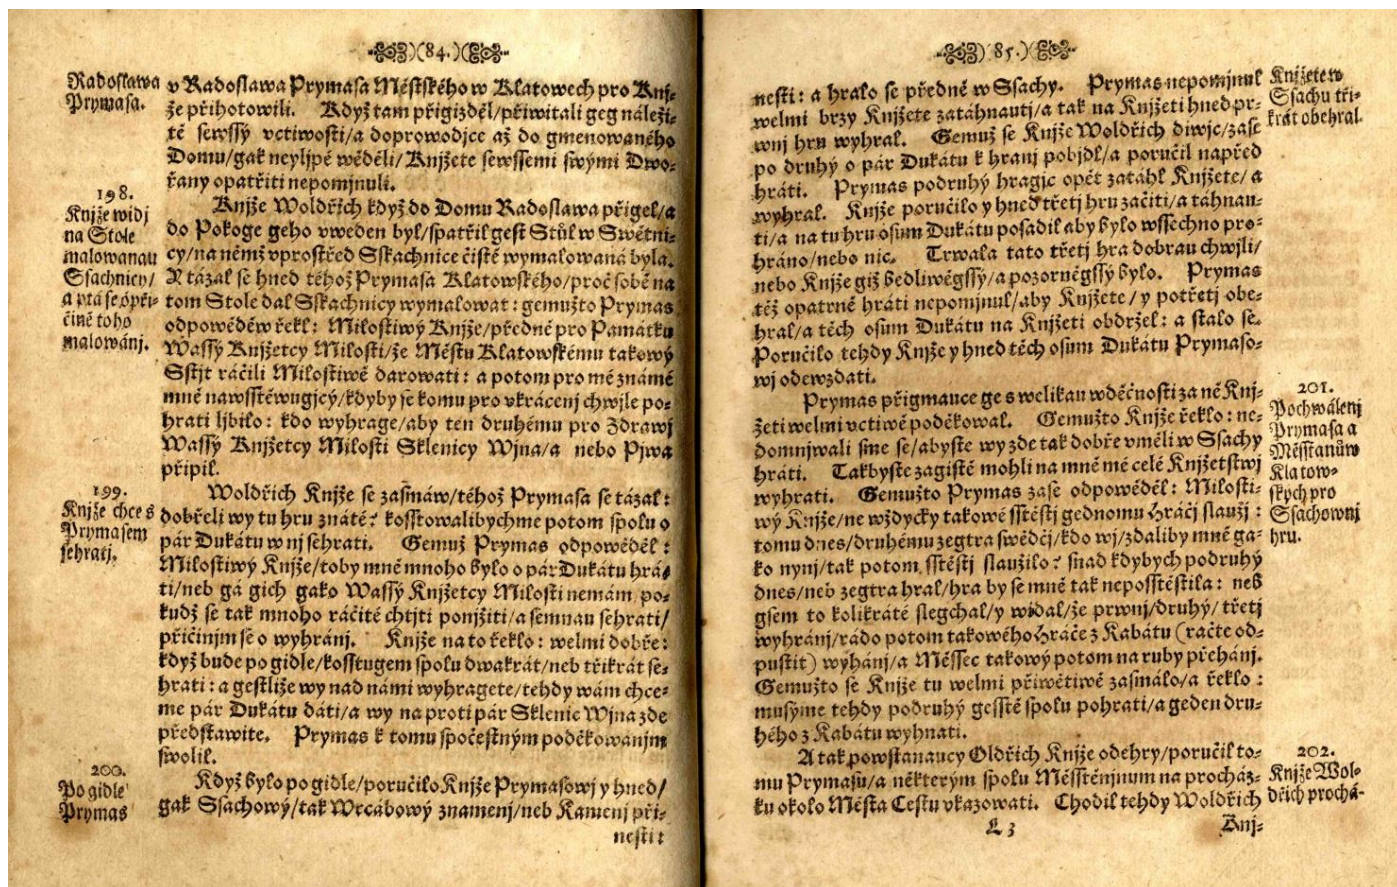 )(84.)(
Radoslawa
Prymasa.
v Radoslawa Prymasa Městského w Klatowech pro Knj-
že přihotowili. Když tam přigizděl/přiwitali geg náleži-
tě sewssý vctiwostí/a doprowodjce až do gmenowaného
Domu/gak neylépe wěděli/Knjžete sewssemi swými Dwo-
řany opatřiti nepominuli.
198.
Knjže widj
na Stole
malowanau
Ssachnicy/
a ptá se o při-
čině toho
malowánj.
Knjže Woldřich když do Domu Radoslawa přigel/a
do Pokoge geho vweden byl/spatřil gest Stůl w Swětni-
cy/na němž vprostřed Sskachnice čistě wymalowaná byla.
Y tázal se hned téhož Prymasa Klatowského/proč sobě na
tom Stole dal Sskachnicy wymalowat: gemužto Prymas
odpowěděw řekl: Milostiwý Knjže/předně pro Památku
Wassý Knjžetcy Milosti/že Městu Klatowskému takowý
Sstjt ráčili Milostiwě darowati: a potom pro mé známé
mně nawsstěwugjcý/kdyby se komu pro vkrácenj chwjle po-
hrati ljbilo: kdo wyhrage/aby ten druhému pro Zdrawj
Wassý Knjžetcy Milosti Sklenicy Wjna/a nebo Pjwa
připil.
199.
Knjže chce s
Prymasem
sehrati.
Woldřich Knjže se zasmáw/téhož Prymasa se tázal:
dobřeli wy tu hru znáte? kosstowalibychme potom spolu o
pár Dukátu w nj sehrati. Gemuž Prymas odpowěděl:
Milostiwý Knjže/toby mně mnoho bylo o pár Dukátu hrá-
ti/neb ga gich gako Wassý Knjžetcy Milosti nemám, po-
kudž se tak mnoho ráčité chtjti ponjžiti/a semnau sehrati/
přičinjm se o wyhránj. Knjže na to řeklo: welmi dobře:
když bude po gidle/kosstugem spolu dwakrát/neb třikrát se-
hrati: a gestliže wy nad námi wyhragete/tehdy wám chce-
me pár Dukátu dáti/a wy na proti pár Sklenic Wjna zde
předstawite. Prymas k tomu spočestným poděkowanjm
swolil.
200.
Po gidle
Prymas
Když bylo po gidle/poručilo Knjže Prymasowj y hned/
gak Ssachowý/tak Wrcábowý znamenj/neb Kamenj při-
nesti:
)(85.)(
Knjžete w
Ssachu tři-
krát obehral.
nesti: a hralo se předně w Ssachy. Prymas nepominul
welmi brzy Knjžete zatáhnauti/a tak na Knjžeti hned pr-
wnj hru wyhral. Gemuž se Knjže Woldřich diwjc/zase
po druhý o pár Dukátu k hranj pobjdl/a poručil napřed
hráti. Prymas podruhý hragjc opět zatáhl Knjžete/a
wyhral. Knjže poručilo y hned třetj hru začiti/a táhnau-
ti/a na tu hru osum Dukátu posadil aby bylo wssechno pro-
hráno/nebo nic. Trwala tato třetj hra dobrau chwjli/
nebo Knjže giž bedliwěgssý/a pozorněgssý bylo. Prymas
též opatrně hráti nepominul/aby Knjžete/y potřetj obe-
hral/a těch osum Dukátu na Knjžeti obdržel: a stalo se.
Poručilo tehdy Knjže y hned těch osum Dukátu Prymaso-
wj odewzdati.
201.
Pochwálenj
Prymasa a
Měsstanůw
Klatow-
ských pro
Ssachownj
hru.
Prymas přigmauce ge s welikau wděčnosti za ně Knj-
žeti welmi vctiwě poděkowal. Gemužto Knjže řeklo: ne-
domnjwali sme se/abyste wy zde tak dobře vměli w Ssachy
hráti. Takbyste zagistě mohli na mně mé celé Knjžetstwj
wyhrati. Gemužto Prymas zase odpowěděl: Milosti-
wý Knjže/ne wždycky takowé sstěstj gednomu Hráčj slaužj:
tomu dnes/druhému zegtra swědčj/kdo wj/zdaliby mně ga-
ko nynj/tak potom sstěstj slaužilo? snad kdybych podruhý
dnes/neb zegtra hral/hra by se mně tak neposstěstila: neb
gsem to kolikráte slegchal/y widal/že prwnj/druhý/třetj
wyhránj/rádo potom takowého Hráče z Kabátu (račte od-
pustit) wyhánj/a Měssec takowý potom na ruby přehánj.
Gemužto se Knjže tu welmi přiwětiwě zasmálo/a řeklo:
musýme tehdy podruhý gesstě spolu pohrati/a geden dru-
hého z Kabátu wyhnati.
202.
Knjže Wol-
dřich prochá-
A tak powstanaucy Oldřich Knjže odehry/poručil to-
mu Prymasu/a některým spolu Měsstěnjnum na procház-
ku okolo Města Cestu vkazowati. Chodil tehdy Woldřich
L 3
Knj-